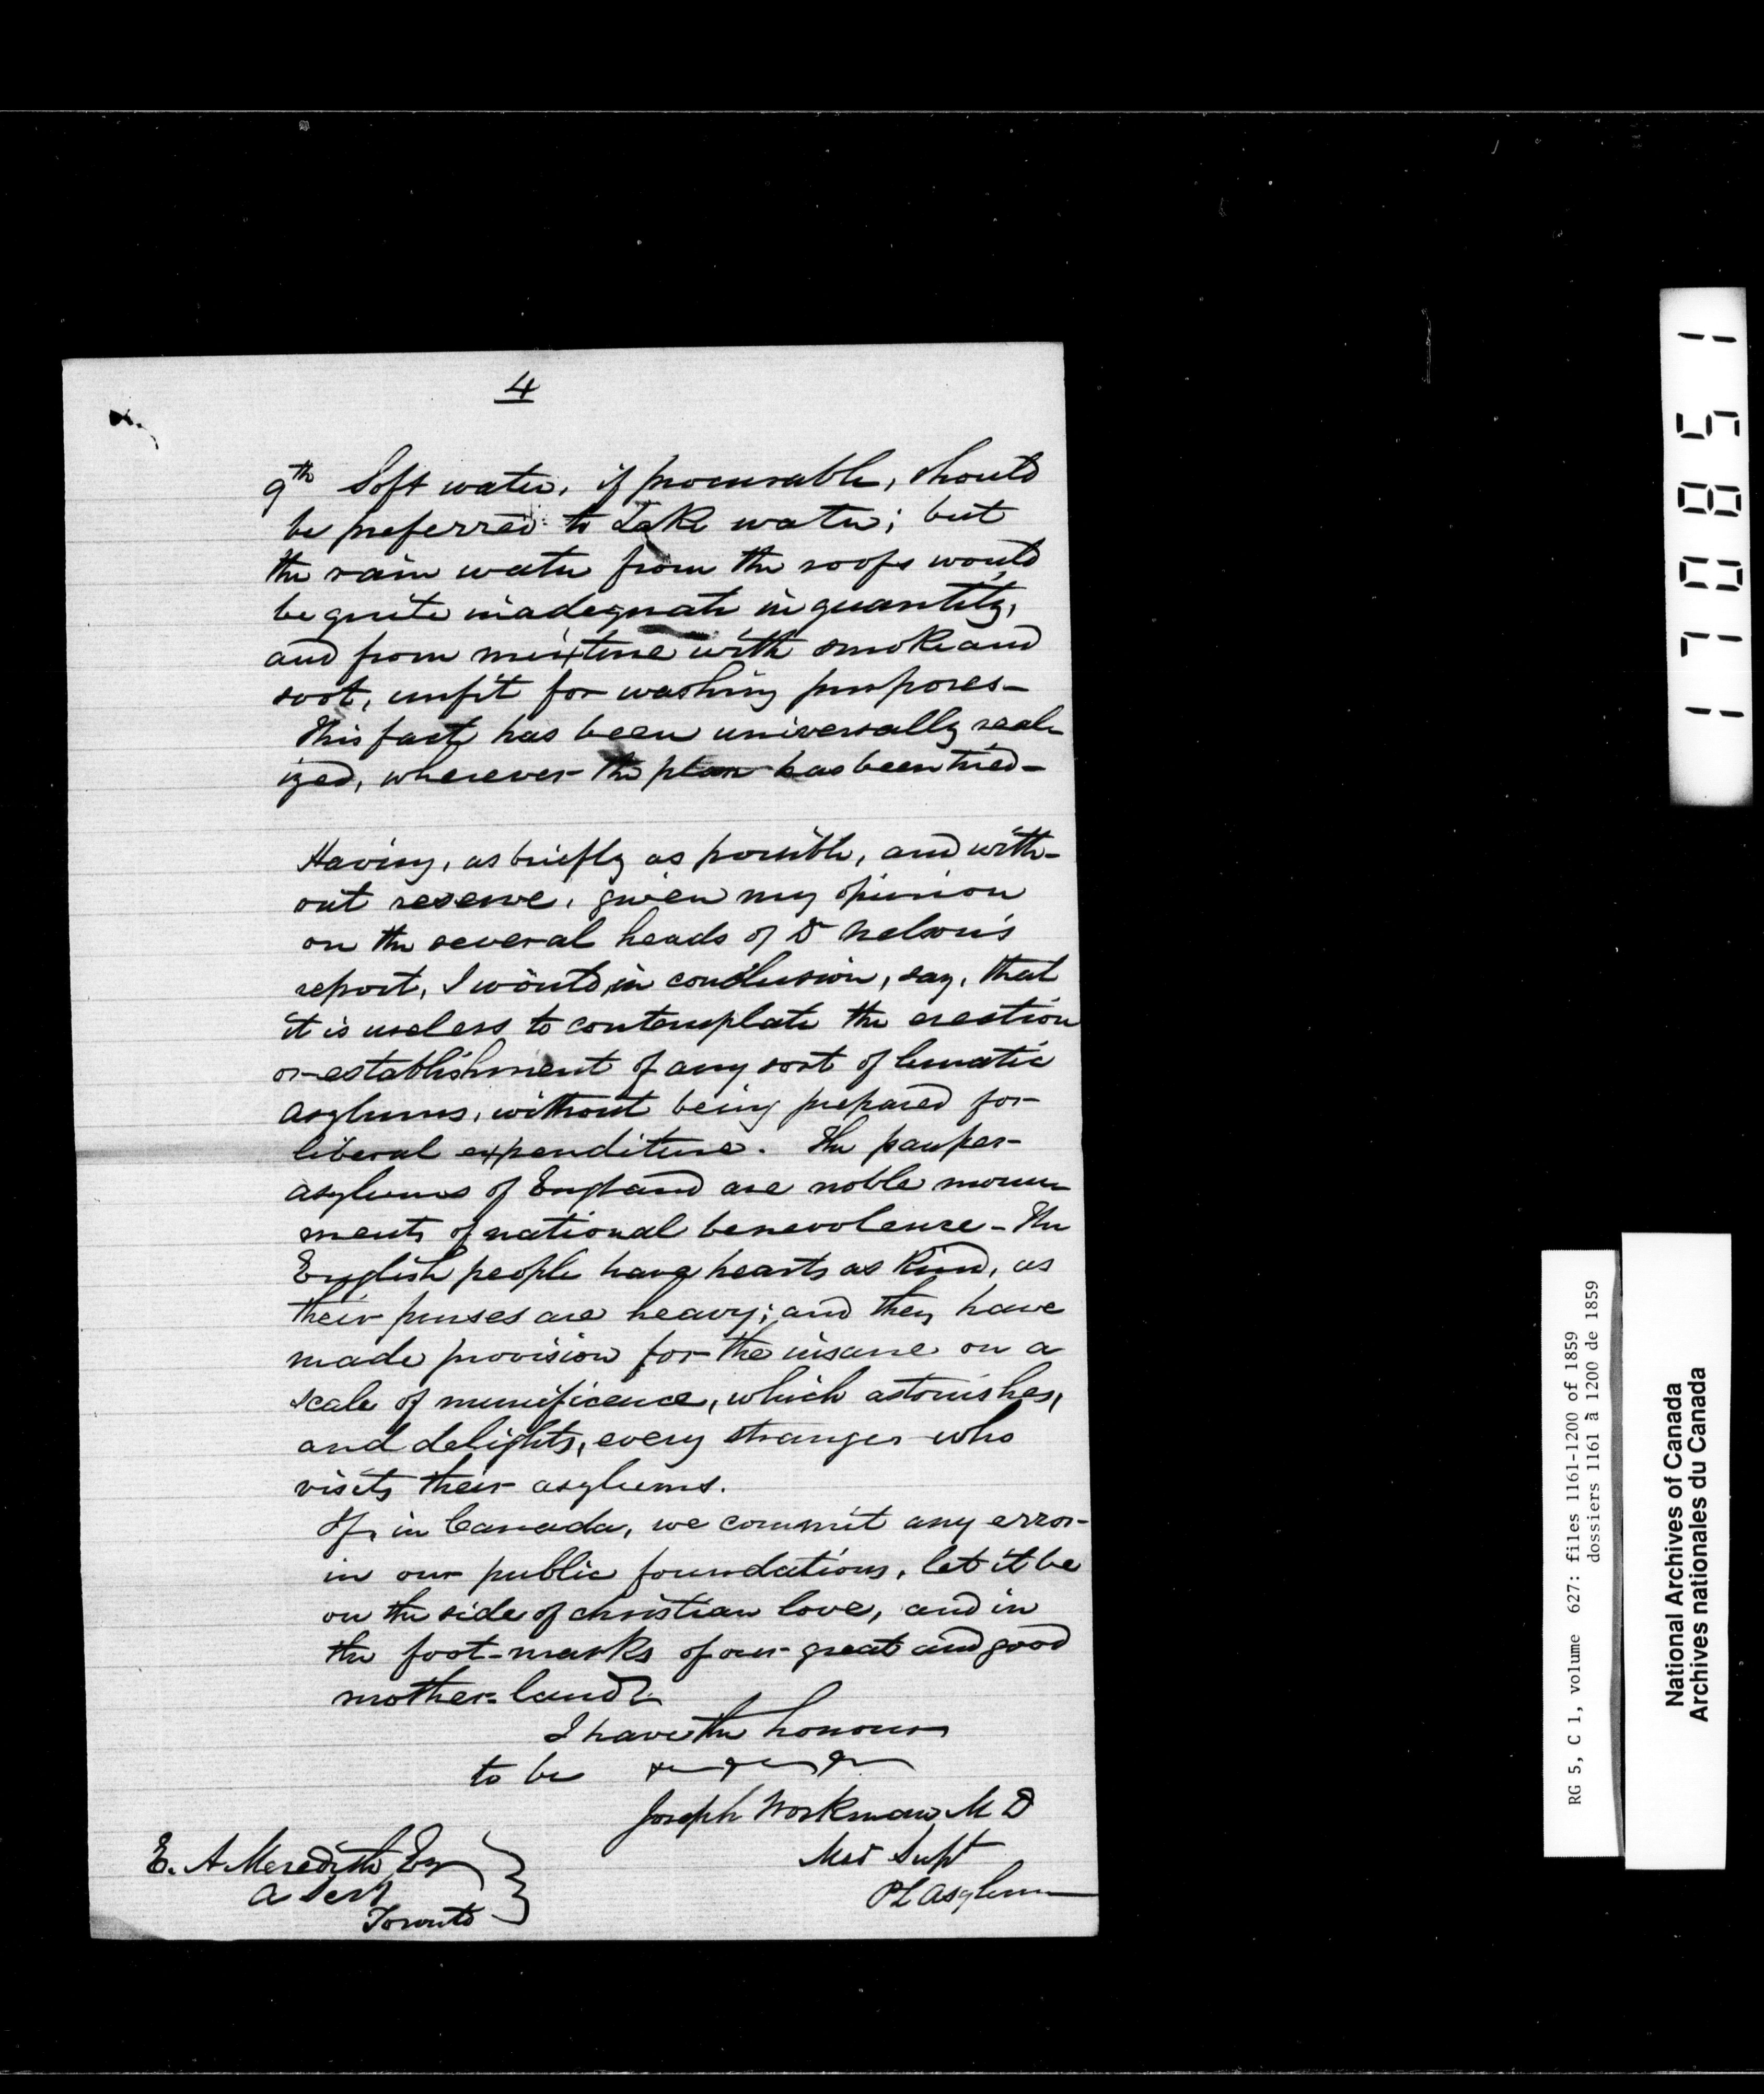 4
9th Soft water, if procurable, should
be preferred to Lake water; but
the rain water from the roofs would
be quite inadequate in quantity,
and from mixture with smoke and
soot, unfit for washing purposes–
This fact has been universally real-
ized, wherever the plan has been tried–
Having, as briefly as possible, and with-
out reserve, given my opinion
on the several heads of Dr Nelson's
report, I would, in conclusion, say, that
it is useless to contemplate the erection
or establishment of any sort of lunatic
asylums, without being prepared for
liberal expenditure. The pauper
asylums of England are noble monu-
ments of national benevolence – The
English people have hearts as kind, as
their purses are heavy; and they have
made provision for the insane on a
scale of munificence, which astonishes,
and delights, every stranger who
visits their asylums.
If, in Canada, we commit any error
in our public foundations, let it be
on the side of christian love, and in
the foot-marks of our great and good
mother-land.
I have the honour
to be
Joseph Workman M D
Med Supt
P L Asylum
E. A Meredith Esq
A Secy
Toronto
170851
RG 5, C 1, volume 627: files 1161-1200 of 1859
dossiers 1161 à 1200 de 1859
National Archives of Canada
Archives nationales du Canada